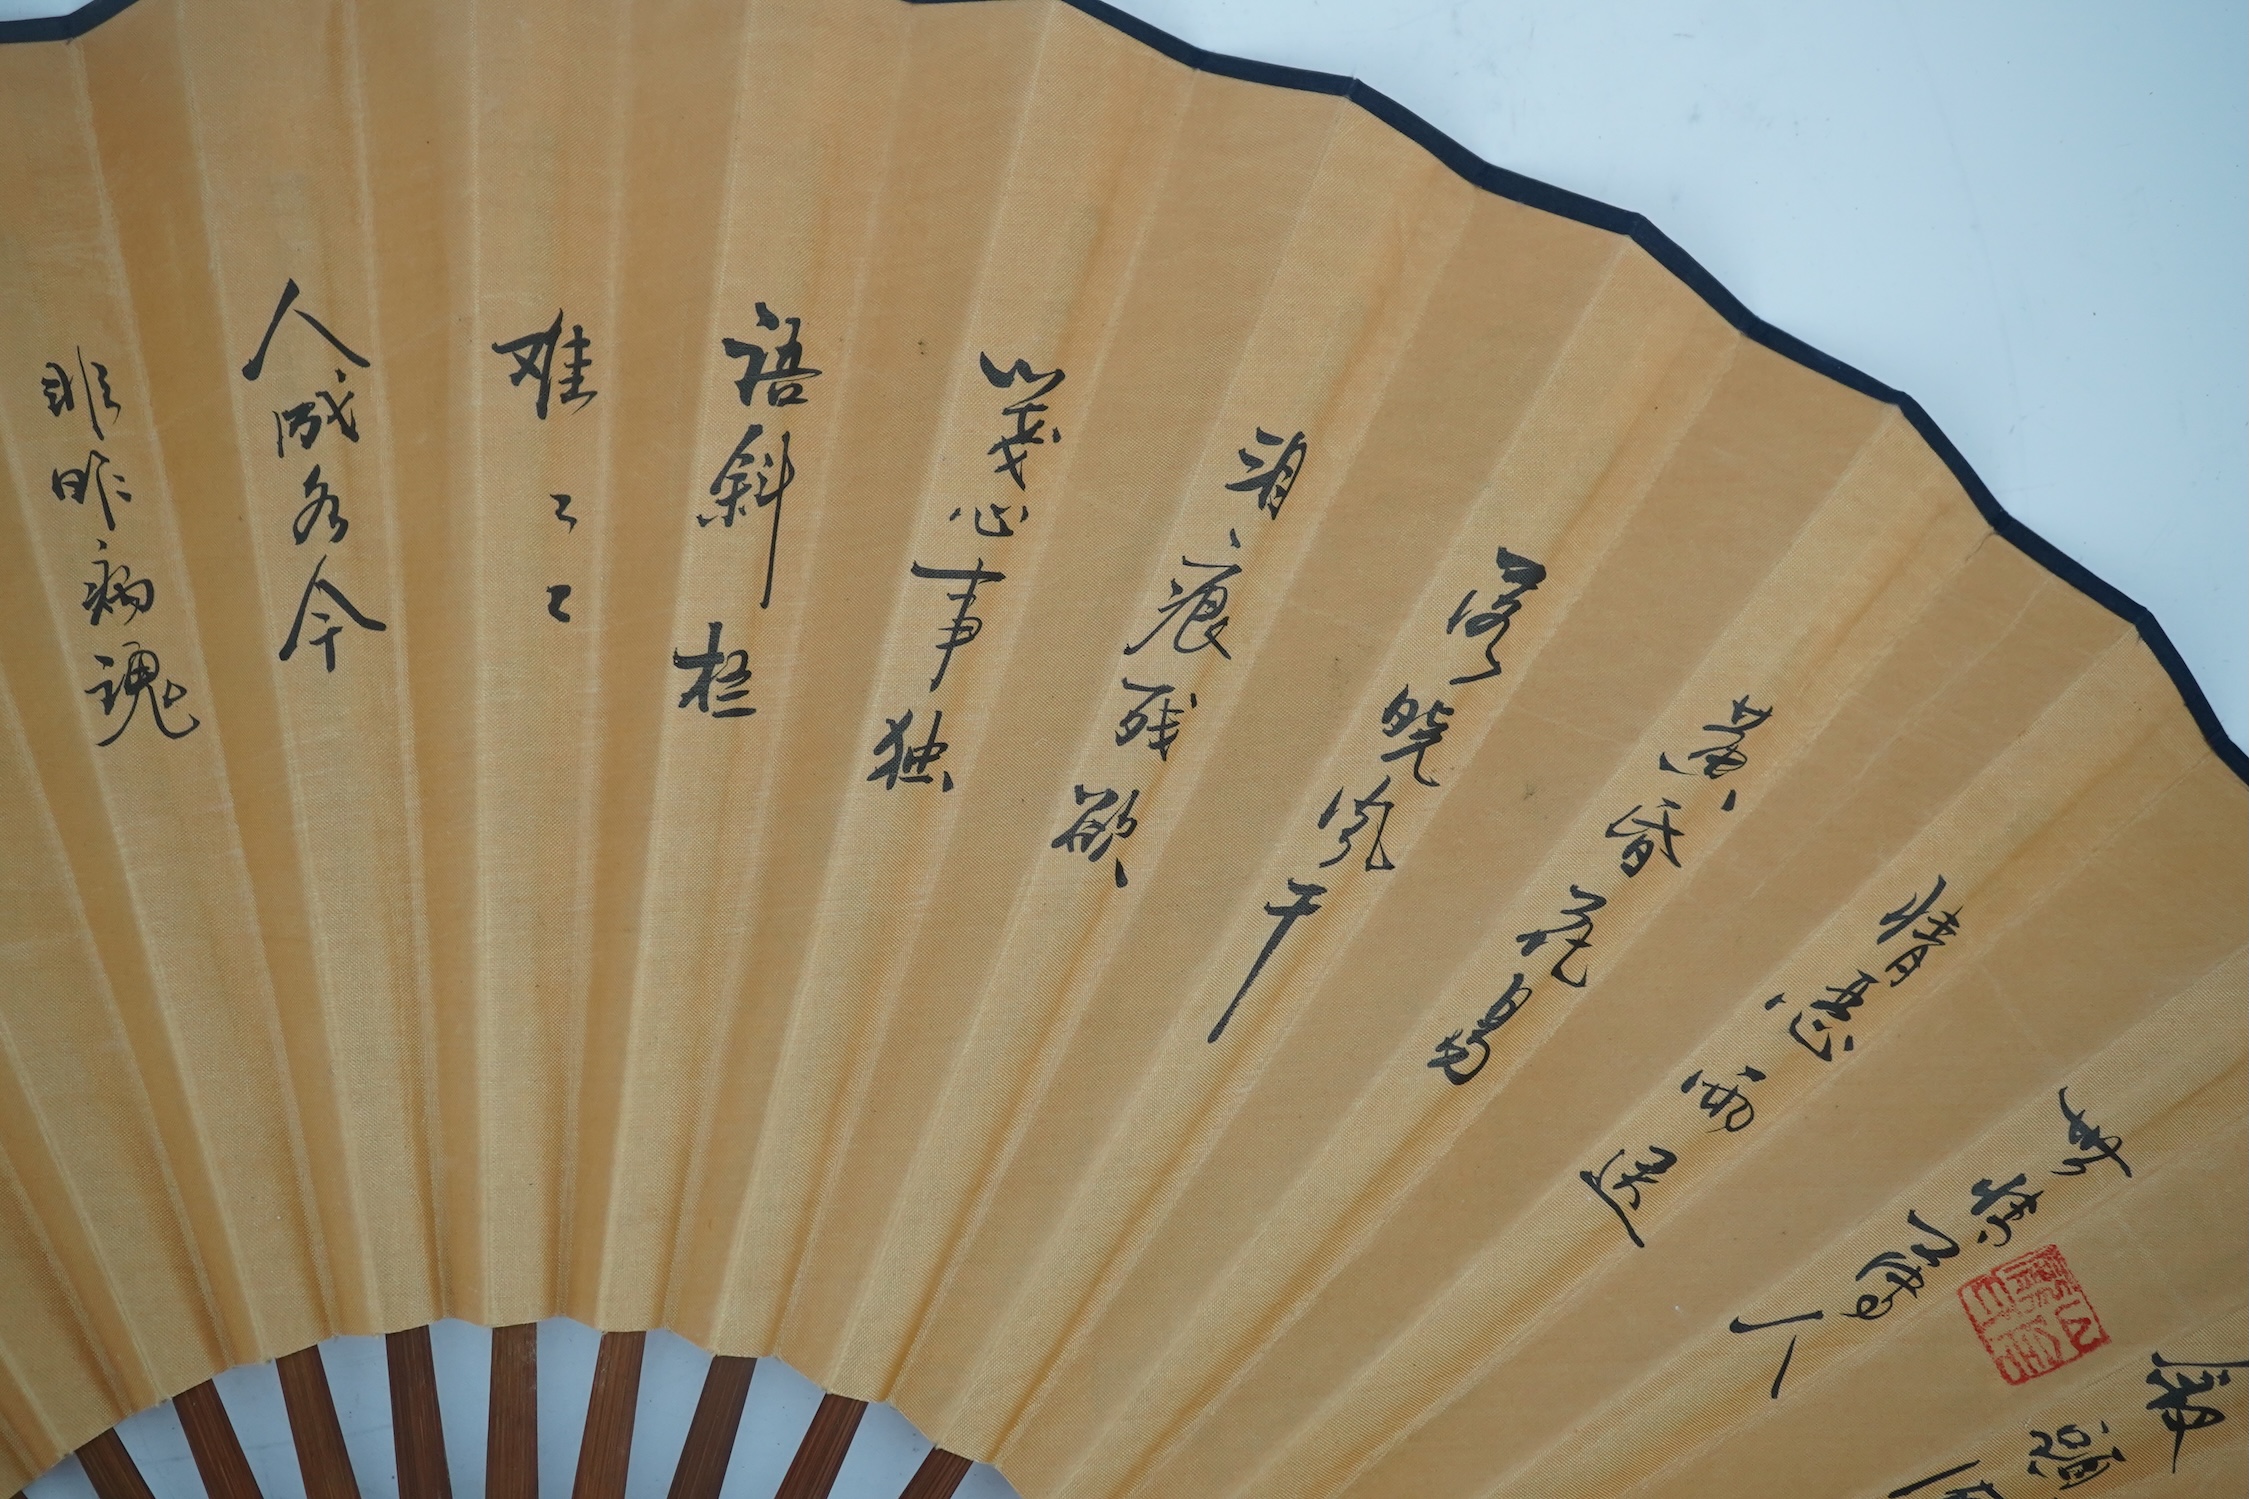 世情薄人
情恶雨送
黄昏花易
落晓风干
泪痕残欲
笺心事独
语斜栏
难々々
人成各今
非昨病魂